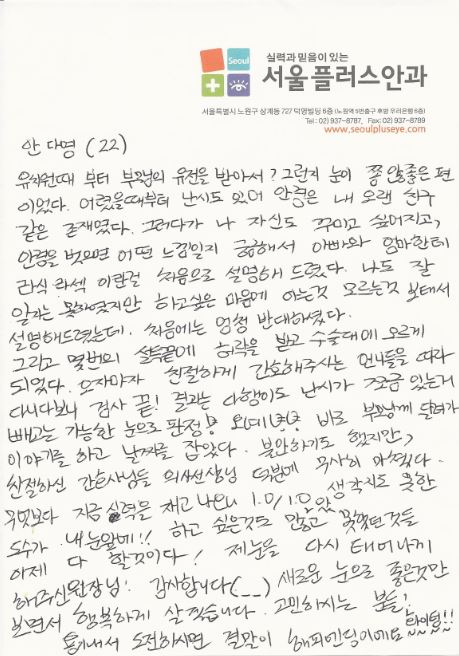 Seoul
실력과 믿음이 있는
서울플러스안과
서울특별시 노원구 상계동 727 덕영빌딩 6층 (노원역 5번출구 후방 우리은행 6층)
Tel : 02) 937-8787, Fax: 02) 937-8789
www.seoulpluseye.com
안다영 (22)
유치원때 부터 부모님의 유전을 받아서? 그런지 눈이 쫌 않좋은 편
이었다. 어렸을때부터 난시도 있어 안경은 내 오랜 친구
같은 존재였다. 그러다가 나 자신도 꾸미고 싶어지고,
안경을 벗으면 어떤 느낌일지 궁금해서 아빠와 엄마한테
라식·라섹 이란걸 처음으로 설명해 드렸다. 나도 잘
알지는 못하였지만 하고싶은 마음에 아는것 모르는것 보태서
설명해드렸는데. 처음에는 엄청 반대하셨다.
그리고 몇번의 설득끝에 허락을 받고 수술대에 오르게
되었다. 오자마자 친절하게 간호해주시는 언니들을 따라
다니다보니 검사 끝! 결과는 다행이도 난시가 조금 있는거
빼고는 가능한 눈으로 판정! 바로 부모님께 달려가
이야기를 하고 날짜를 잡았다. 불안하기도 했지만,
친절하신 간호사님들 의사선생님 덕분에 무사히 마쳤다.
무엇보다 지금 시력을 재고 나오니 1.0/1.0 앗 생각지도 못한
도수가 내 눈앞에!! 하고 싶은것도 많고 못했던것들
이제 다 할것이다! 제눈을 다시 태어나게
해주신원장님. 감사합니다(__) 새로운 눈으로 좋은것만
보면서 행복하게 살겠습니다. 고민하시는 분들!
용기내서 도전하시면 결말이 해피엔딩이에요 화이팅!!